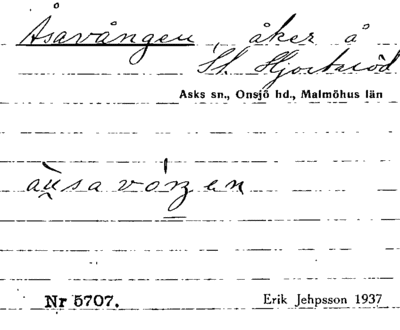 Åsavången, åker å
St. Hjortaröd
Asks sn., Onsjö hd., Malmöhus län
Nr 5707. Erik Jehpsson 1937